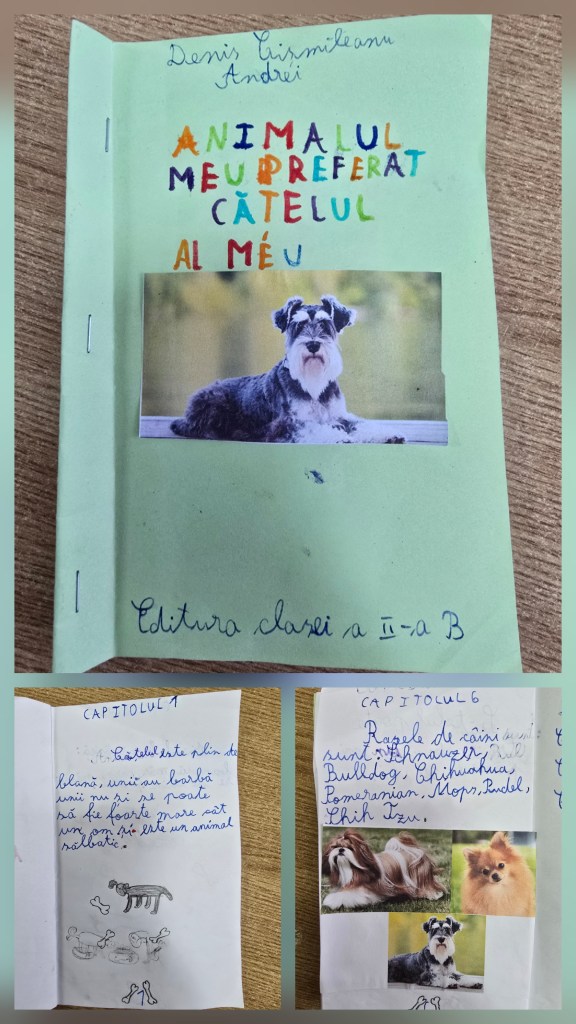 Denis Cişmileanu
Andrei
ANIMALUL
MEU PREFERAT
CĂŢELUL
AL MÉU
Editura clasei a II-a B
CAPITOLUL 1
Căţelul este plin de
blană, unii au barbă
unii nu şi se poate
să fie foarte mare cât
un om şi este un animal
sălbatic.
1
CAPITOLUL 6
Rasele de câini
sunt: Schnauzer,
Bulldog, Chihuahua,
Pomeranian, Mops, Pudel,
Shih Tzu.